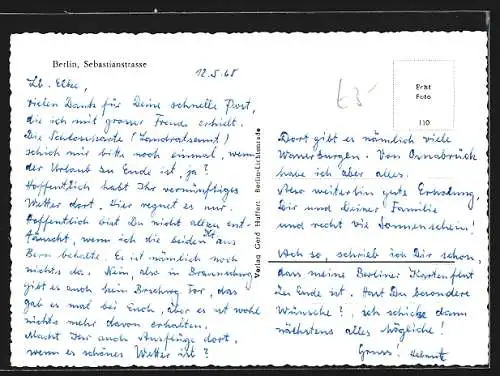 Berlin, Sebastianstrasse
12.5.65
Echt
Foto
110
Lb. Elke,
vielen Dank für Deine schnelle Post,
die ich mit grosser Freude erhielt.
Die Schlosskarte (Landratsamt)
schick mir bitte noch einmal, wenn
der Urlaub zu Ende ist, ja?
Hoffentlich habt Ihr vernünftiges
Wetter dort. Hier regnet es nur.
Hoffentlich bist Du nicht allzu ent-
täuscht, wenn ich die beiden aus
Bern behalte. Es ist nämlich noch
nichts da. Nein, also in Braunsburg
gibt es auch kein Tor, das
gab es mal bei Euch, aber es ist wohl
nichts mehr davon erhalten.
Macht Ihr auch Ausflüge dort,
wenn es schönes Wetter ist?
Verlag Gerd Haffert Berlin-Lichtenrade
Dort gibt es nämlich viele
Wasserburgen. Von Osnabrück
habe ich aber alles.
Also weiterhin gute Erholung,
Dir und Deiner Familie
und recht viel Sonnenschein!
Ach so, schrieb ich Dir schon,
dass meine Berliner Karten fast
zu Ende ist. Hast Du besondere
Wünsche?, ich schicke dann
nächstens alles Mögliche!
Gruss! Helmut